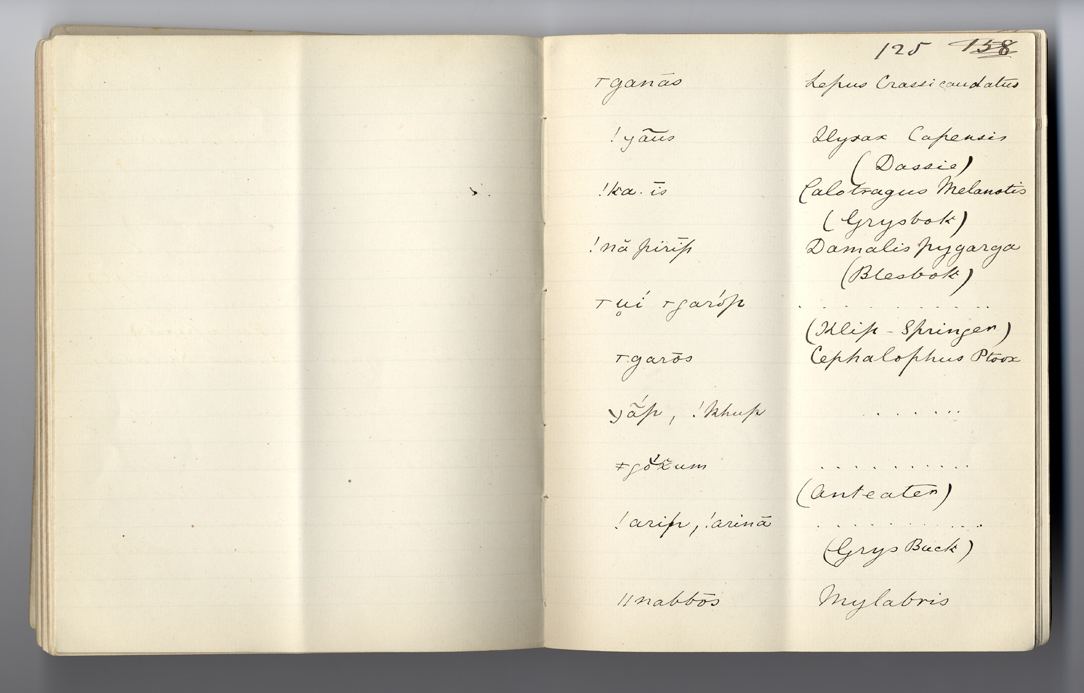 125 158
⊤ganās Lepus Crassicaudatus
!yãus Hyrax Capensis
(Dassie)
!ka.īs Calotragus Melanotis
(Grysbok)
!nă pirīp Damalis pygarga
(Blesbok)
⊤ụí ⊤garóp . . . . . . . . . .
(Klip-Springer)
⊤garōs Cephalophus Ptoox
yãṕ, !khup . . . . . . .
ǂgŏxum . . . . . . . . . .
(Anteater)
!arip, !arinā . . . . . . . . . . .
(Grys Buck)
ǁnabbōs Mylabris